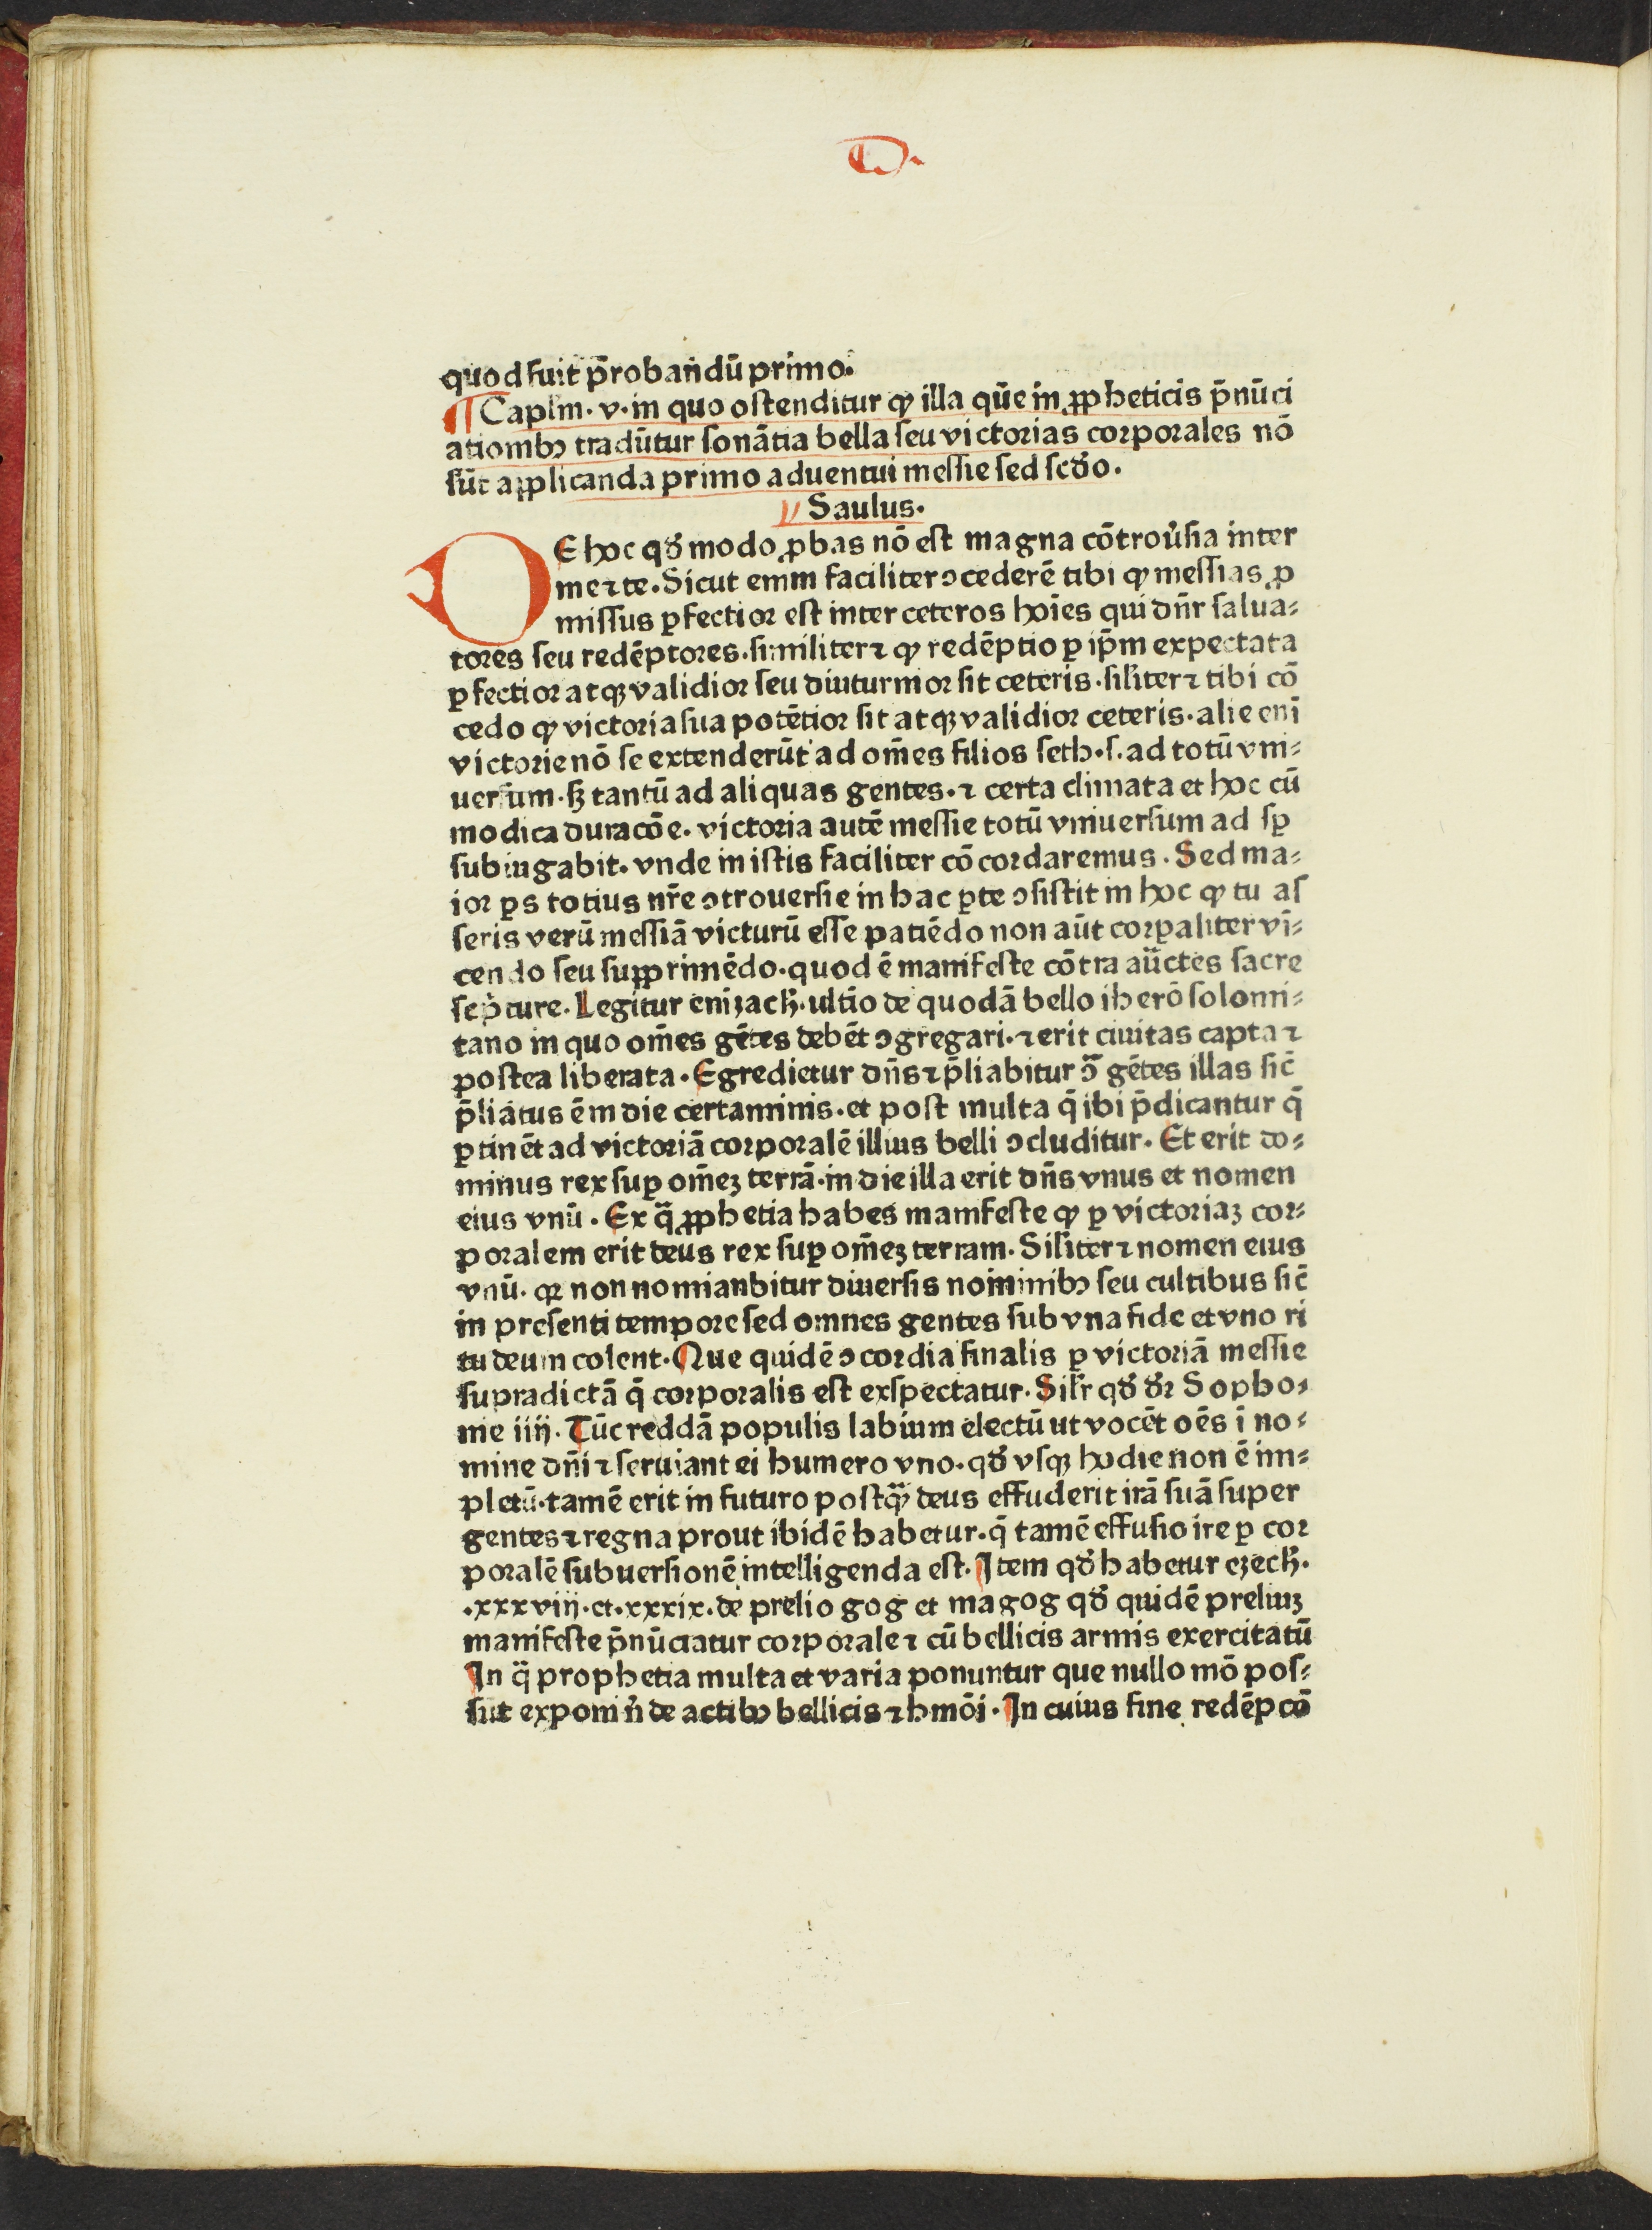 D.
quod fuit p̄robandū primo.
¶ Caplm̄. v. in quo ostenditur ꝙ illa qūe in ꝓpheticis p̄nūci
atiombꝫ tradūtur sonātia bella seu victorias corporales nō
sūt applicanda primo aduentui messie sed scd̓o.
Saulus.
DE hoc qd̓ modo ꝓbas nō est magna cōtrou̓sia inter
me ⁊ te. Sicut enim faciliter ↄcederē tibi ꝙ messias ꝓ
missus ꝑfectior est inter ceteros hoīes qui dn̄r salua⸗
tores seu redēptores. similiter ⁊ ꝙ redēptio ꝑ ip̄m expectata
ꝑfectior atqꝫ validior seu diuturnior sit ceteris. silīter ⁊ tibi cō
cedo ꝙ victoria sua potētior sit atqꝫ validior ceteris. alie enī
victorie nō se extenderūt ad om̄es filios seth. s. ad totū vni⸗
uersum. sꝫ tantū ad aliquas gentes. ⁊ certa climata et hoc cū
modica duracōe. victoria autē messie totū vniuersum ad sꝑ
subiugabit. vnde in istis faciliter cōcordaremus. Sed ma⸗
ior ꝑs totius nr̄e ↄtrouersie in hac ꝑte ↄsistit in hoc ꝙ tu as
seris verū messiā victurū esse patiēdo non aūt corꝑaliter vī⸗
cendo seu supprimēdo. quod ē manifeste cōtra aūctes sacre
scp̓ture. Legitur eni zach̓. ultīo de quodā bello iherōsolomi⸗
tano in quo om̄es gētes debēt ↄgregari. ⁊ erit ciuitas capta ⁊
postea liberata. Egredietur dn̄s ⁊ p̄liabitur ↄ̄ gētes illas sic̄
p̄liatus ē in die certaminis. et post multa q̄ ibi p̄dicantur q̄
ꝑtinēt ad victoriā corporalē illius belli ↄcluditur. Et erit do⸗
minus rex suꝑ om̄eꝫ terrā. in die illa erit dn̄s vnus et nomen
eius vnū. Ex q̄ ꝓphetia habes manifeste ꝙ ꝑ victoriaꝫ cor⸗
poralem erit deus rex suꝑ om̄eꝫ terram. Silīter ⁊ nomen eius
vnū. qꝛ non nomianbitur diuersis nominibꝫ seu cultibus sic̄
in presenti tempore sed omnes gentes sub vna fide et vno ri
tu deum colent. Que quidē ↄcordia finalis ꝑ victoriā messie
supradictā q̄ corporalis est exspectatur. Silr̄ qd̓ dr̄ Sopho⸗
nie iiij. Tūc reddā populis labium electū ut vocēt oēs ī no⸗
mine dn̄i ⁊ seruiant ei humero vno. qd̓ vsqꝫ hodie non ē im⸗
pletū. tamē erit in futuro postqꝙ̄ deus effuderit irā suā super
gentes ⁊ regna prout ibidē habetur. q̄ tamē effusio ire ꝑ cor
poralē subuersionē intelligenda est. Item qd̓ habetur ezech̓.
.xxxviij. et .xxxix. de prelio gog et magog qd̓ quidē preliuꝫ
manifeste p̄nūciatur corporale ⁊ cū bellicis armis exercitatū
In q̄ prophetia multa et varia ponuntur que nullo mō pos⸗
sūt exponi n̓ de actibꝫ bellicis ⁊ hmōi. In cuius fine redēpcō